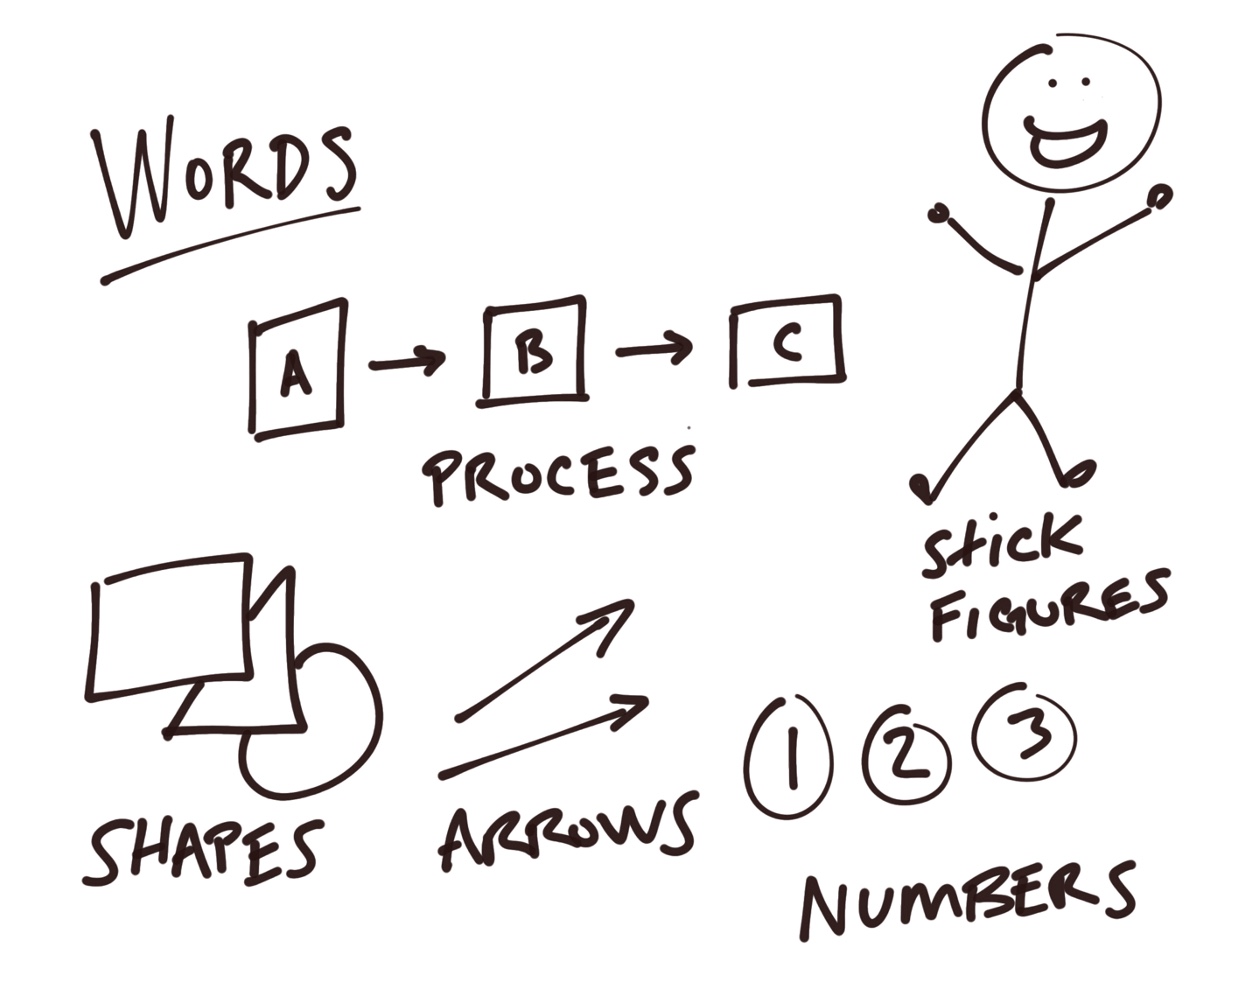 WORDS
A → B → C
PROCESS
Stick
FIGURES
SHAPES
ARROWS
1 2 3
NUMBERS